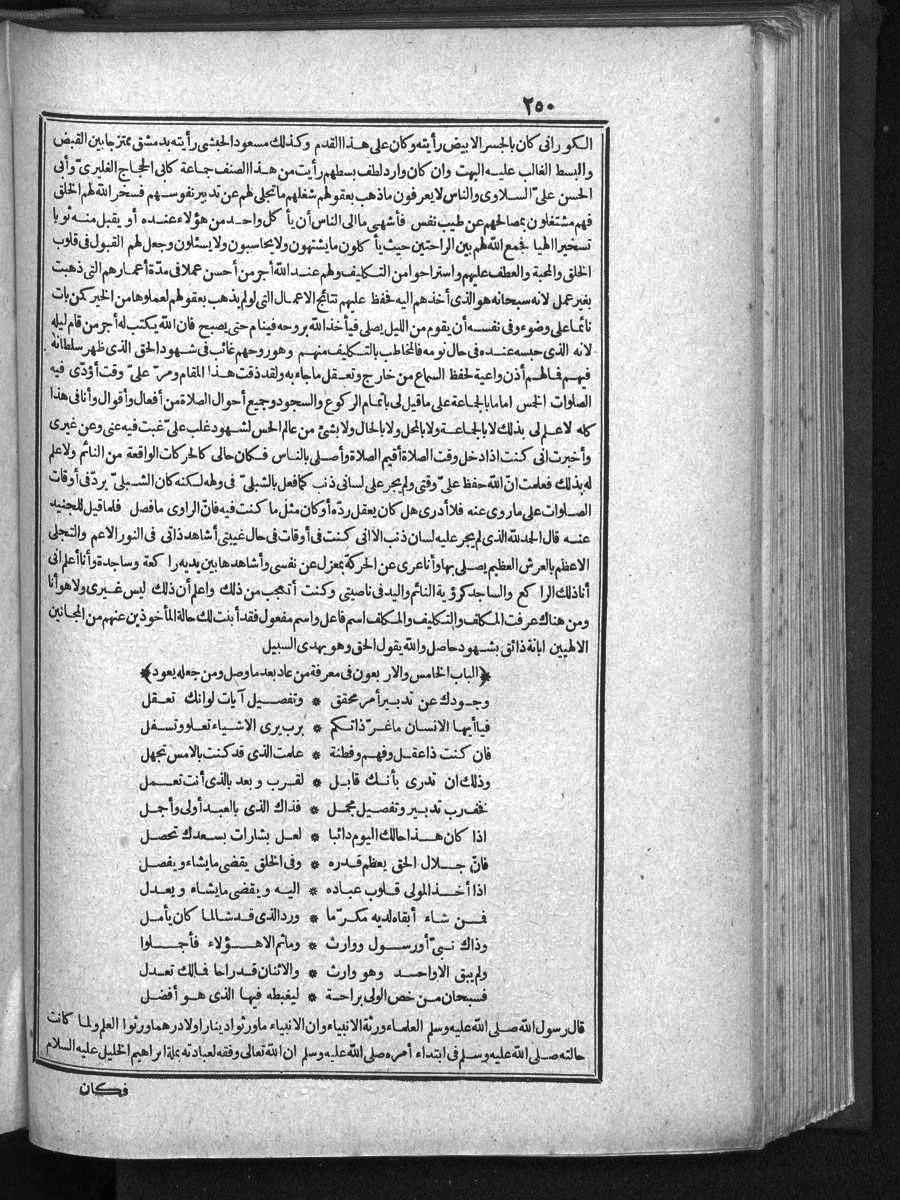 ٢٥٠
الكورانى كان بالجسر الابيض رأيته وكان على هذا القدم وكذلك مسعود الحبشى رأيته بدمشق ممتزجا بين القبض
والبسط الغالب عليه البهت وان كان وارد لطف بسطهم رأيت من هذا الصنف جماعة كابى الحجاج الغليرىّ وأبى
الحسن علىّ السلاوى والناس لا يعرفون ما ذهب بعقولهم شغلهم ما تجلى لهم عن تدبير نفوسهم فسخر الله لهم الخلق
فهم مشتغلون بمصالحهم عن طيب نفس فأشهى ما الى الناس أن يأكل واحد من هؤلاء عنده أو يقبل منه ثوبا
تسخيرا الهيا فجمع الله لهم بين الراحتين حيث يأكلون ما يشتهون ولا يحاسبون ولا يسئلون وجعل لهم القبول فى قلوب
الخلق والمحبة والعطف عليهم واستراحوا من التكليف ولهم عند الله أجر من أحسن عملا فى مدّة أعمارهم التى ذهبت
بغير عمل لانه سبحانه هو الذى أخذهم اليه فحفظ عليهم نتائج الاعمال التى لو لم يذهب بعقولهم لعملوها من الخير كمن بات
نائما على وضوء وفى نفسه أن يقوم من الليل يصلى فيأخذ الله بروحه فينام حتى يصبح فان الله يكتب له أجر من قام ليله
لانه الذى حبسه عنده فى حال نومه فالمخاطب بالتكليف منهم وهو روحهم غائب فى شهود الحق الذى ظهر سلطانه
فيهم فالهم أذن واعية لحفظ السماع من خارج وتعقل ما جاء به ولقد ذقت هذا المقام ومرّ علىّ وقت أؤدّى فيه
الصلوات الخمس اماما بالجماعة على ما قيل لى باتمام الركوع والسجود وجميع أحوال الصلاة من أفعال وأقوال وأنا فى هذا
كله لا علم لى بذلك لا بالجماعة ولا بالمحل ولا بالحال ولا بشئ من عالم الحس لشهود غلب علىّ غبت فيه عنى وعن غيرى
وأخبرت انى كنت اذا دخل وقت الصلاة أقيم الصلاة وأصلى بالناس فكان حالى كالحركات الواقعة من النائم ولا علم
له بذلك فعلمت انّ الله حفظ علىّ وقتى ولم يجر على لسانى ذنب كما فعل بالشبلىّ فى ولهه لكنه كان الشبلىّ يردّ فى أوقات
الصلوات على ما روى عنه فلا أدرى هل كان يعقل ردّه أو كان مثل ما كنت فيه فانّ الراوى ما فصل فلما قيل للجنيد
عنه قال الحمد لله الذى لم يجر عليه لسان ذنب الا انى كنت فى أوقات فى حال غيبتى أشاهد ذاتى فى النور الاعم والتجلى
الاعظم بالعرش العظيم يصلى بها وأنا عرى عن الحركة بمعزل عن نفسى وأشاهدها بين يديه راكعة وساجدة وأنا أعلم انى
أنا ذلك الراكع والساجد كرؤية النائم واليد فى ناصيتى وكنت أتعجب من ذلك واعلم أن ذلك ليس غيرى ولا هو أنا
ومن هناك عرفت المكلف والتكليف والمكلف اسم فاعل واسم مفعول فقد أبنت لك حالة المأخوذين عنهم من المجانين
الالهيين ابانة ذائق بشهود حاصل والله يقول الحق وهو يهدى السبيل
﴿الباب الخامس والاربعون فى معرفة من عاد بعد ما وصل ومن جعله يعود﴾
وجودك عن تدبير أمر محقق * وتفصيل آيات لوانك تعقل
فيا أيها الانسان ما غرّ ذاتكم * برب يرى الاشياء تعلو وتسفل
فان كنت ذا عقل وفهم وفطنة * علمت الذى قد كنت بالامس تجهل
وذلك ان تدرى بأنك قابل * لقرب وبعد بالذى أنت تعمل
فخف رب تدبير وتفصيل مجمل * فذاك الذى بالعبد أولى وأجمل
اذا كان هذا حالك اليوم دائبا * لعل بشارات بسعدك تحصل
فانّ جلال الحق يعظم قدره * وفى الخلق يقضى ما يشاء ويفصل
اذا أخذ المولى قلوب عباده * اليه ويقضى ما يشاء ويعدل
فمن شاء أبقاه لديه مكرّما * ورد الذى قد شا لما كان يأمل
وذاك نبىّ أو رسول ووارث * وما ثم الا هؤلاء فأجملوا
ولم يبق الا واحد وهو وارث * والاثنان قد راحا فمالك تعدل
فسبحان من خص الولى براحة * ليغبطه فيها الذى هو أفضل
قال رسول الله صلى الله عليه وسلم العلماء ورثة الانبياء وان الانبياء ما ورثوا دينارا ولا درهما ورثوا العلم ولما كانت
حالته صلى الله عليه وسلم فى ابتداء أمره صلى الله عليه وسلم ان الله تعالى وفقه لعبادته بملة ابراهيم الخليل عليه السلام
فكان